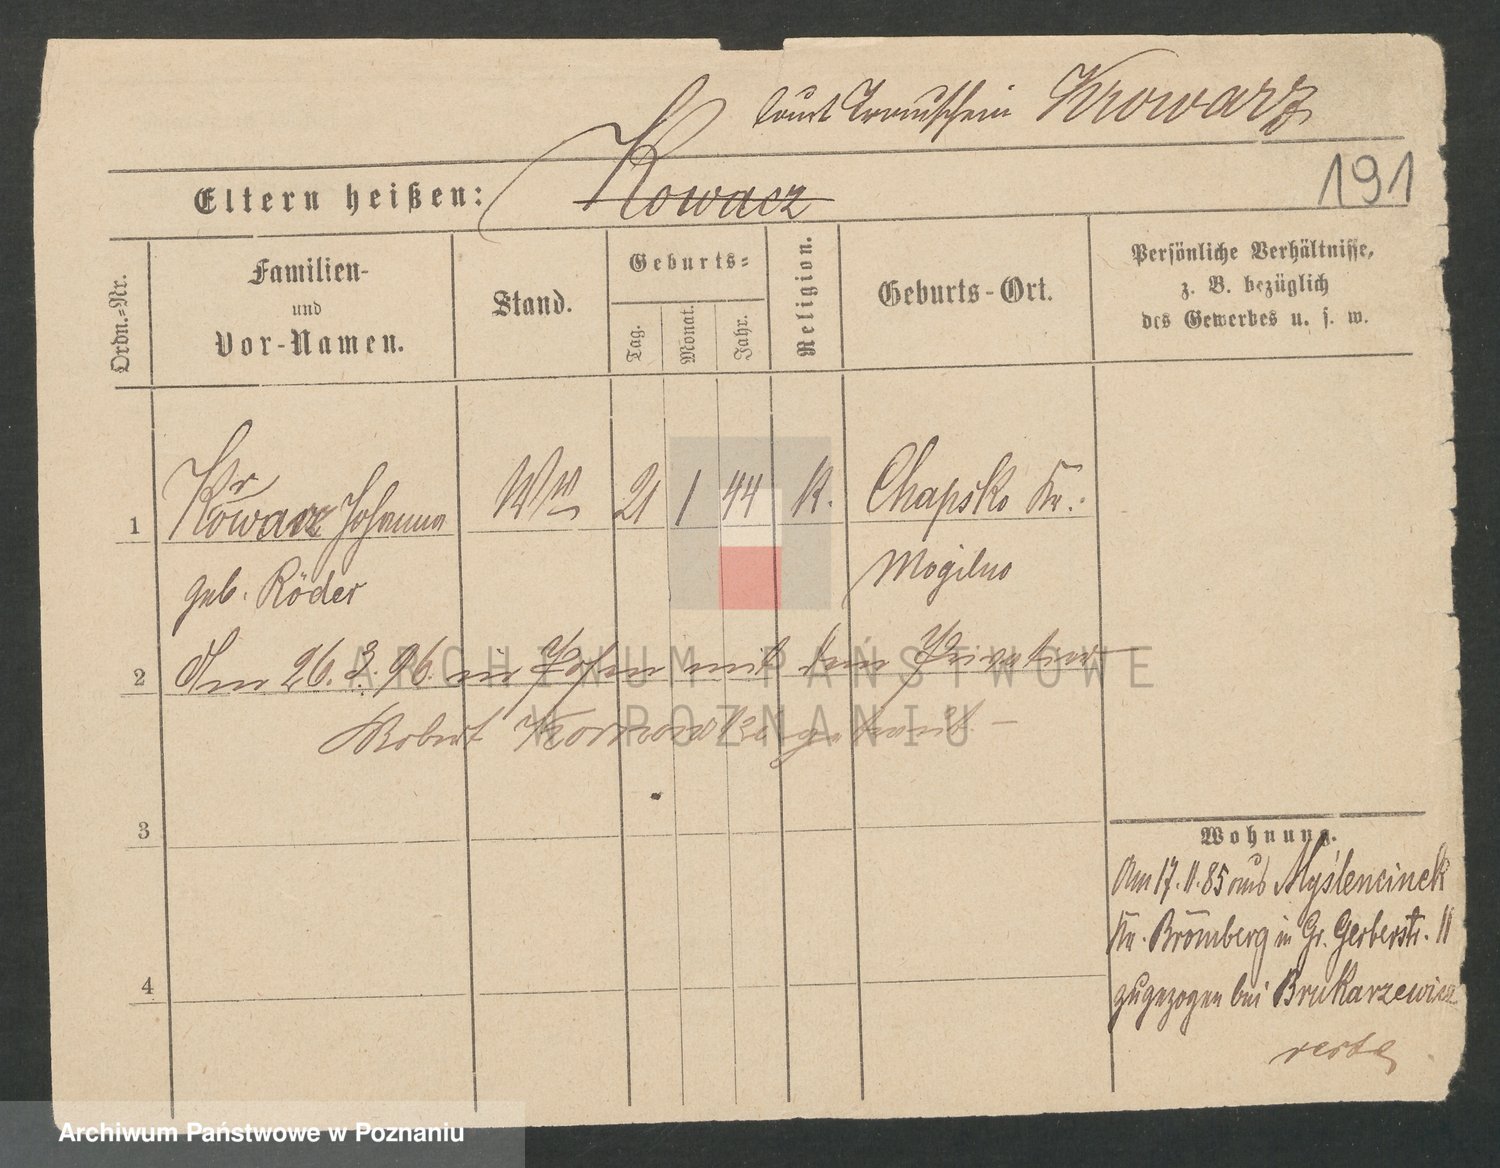 laut Trauschein Krowarz
191
Eltern heißen: Kowacz
Ordn.-Nr.
Familien-
und
Vor-Namen.
Stand.
Geburts-
Tag.
Monat.
Jahr.
Religion.
Geburts-Ort.
Persönliche Verhältnisse,
z. B. bezüglich
des Gewerbes u. s. w.
1 Krowarz Johanna Ww 21 1 44 K. Chapsko Kr.
geb. Röder Mogilno
2 Am 26.3.96. in Posen mit dem Privatier
Robert getraut –
3
4
Wohnung.
Am 17.11.85 aus Myślencinek
Kr. Bromberg in Gr. Gerberstr. 11
zugezogen bei Brukarzewicz
verte
ARCHIWUM PAŃSTWOWE
W POZNANIU
Archiwum Państwowe w Poznaniu